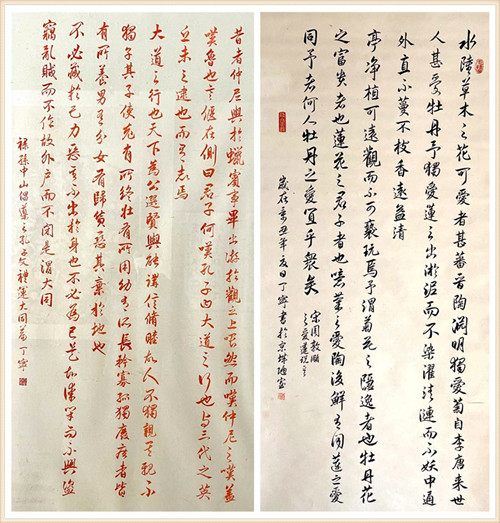 水陸草木之花可愛者甚蕃晉陶淵明獨愛菊自李唐來世
人甚愛牡丹予獨愛蓮之出淤泥而不染濯清漣而不妖中通
外直不蔓不枝香遠益清
亭淨植可遠觀而不可褻玩焉予謂菊花之隱逸者也牡丹花
之富貴者也蓮花之君子者也噫菊之愛陶後鮮有聞蓮之愛
同予者何人牡丹之愛宜乎衆矣
宋周敦頤
之愛蓮說
歲在辛丑年亥日丁寧書於京城
昔者仲尼與於蠟賓事畢出遊於觀之上喟然而嘆仲尼之嘆蓋
嘆魯也言偃在側曰君子何嘆孔子曰大道之行也與三代之英
丘未之逮也而有志焉
大道之行也天下為公選賢與能講信修睦故人不獨親其親不
獨子其子使老有所終壯有所用幼有所長矜寡孤獨廢疾者皆
有所養男有分女有歸貨惡其棄於地也
不必藏於己力惡其不出於身也不必為己是故謀閉而不興盜
竊亂賊而不作故外戶而不閉是謂大同
孫中山倡導之孔子文禮運大同篇丁寧